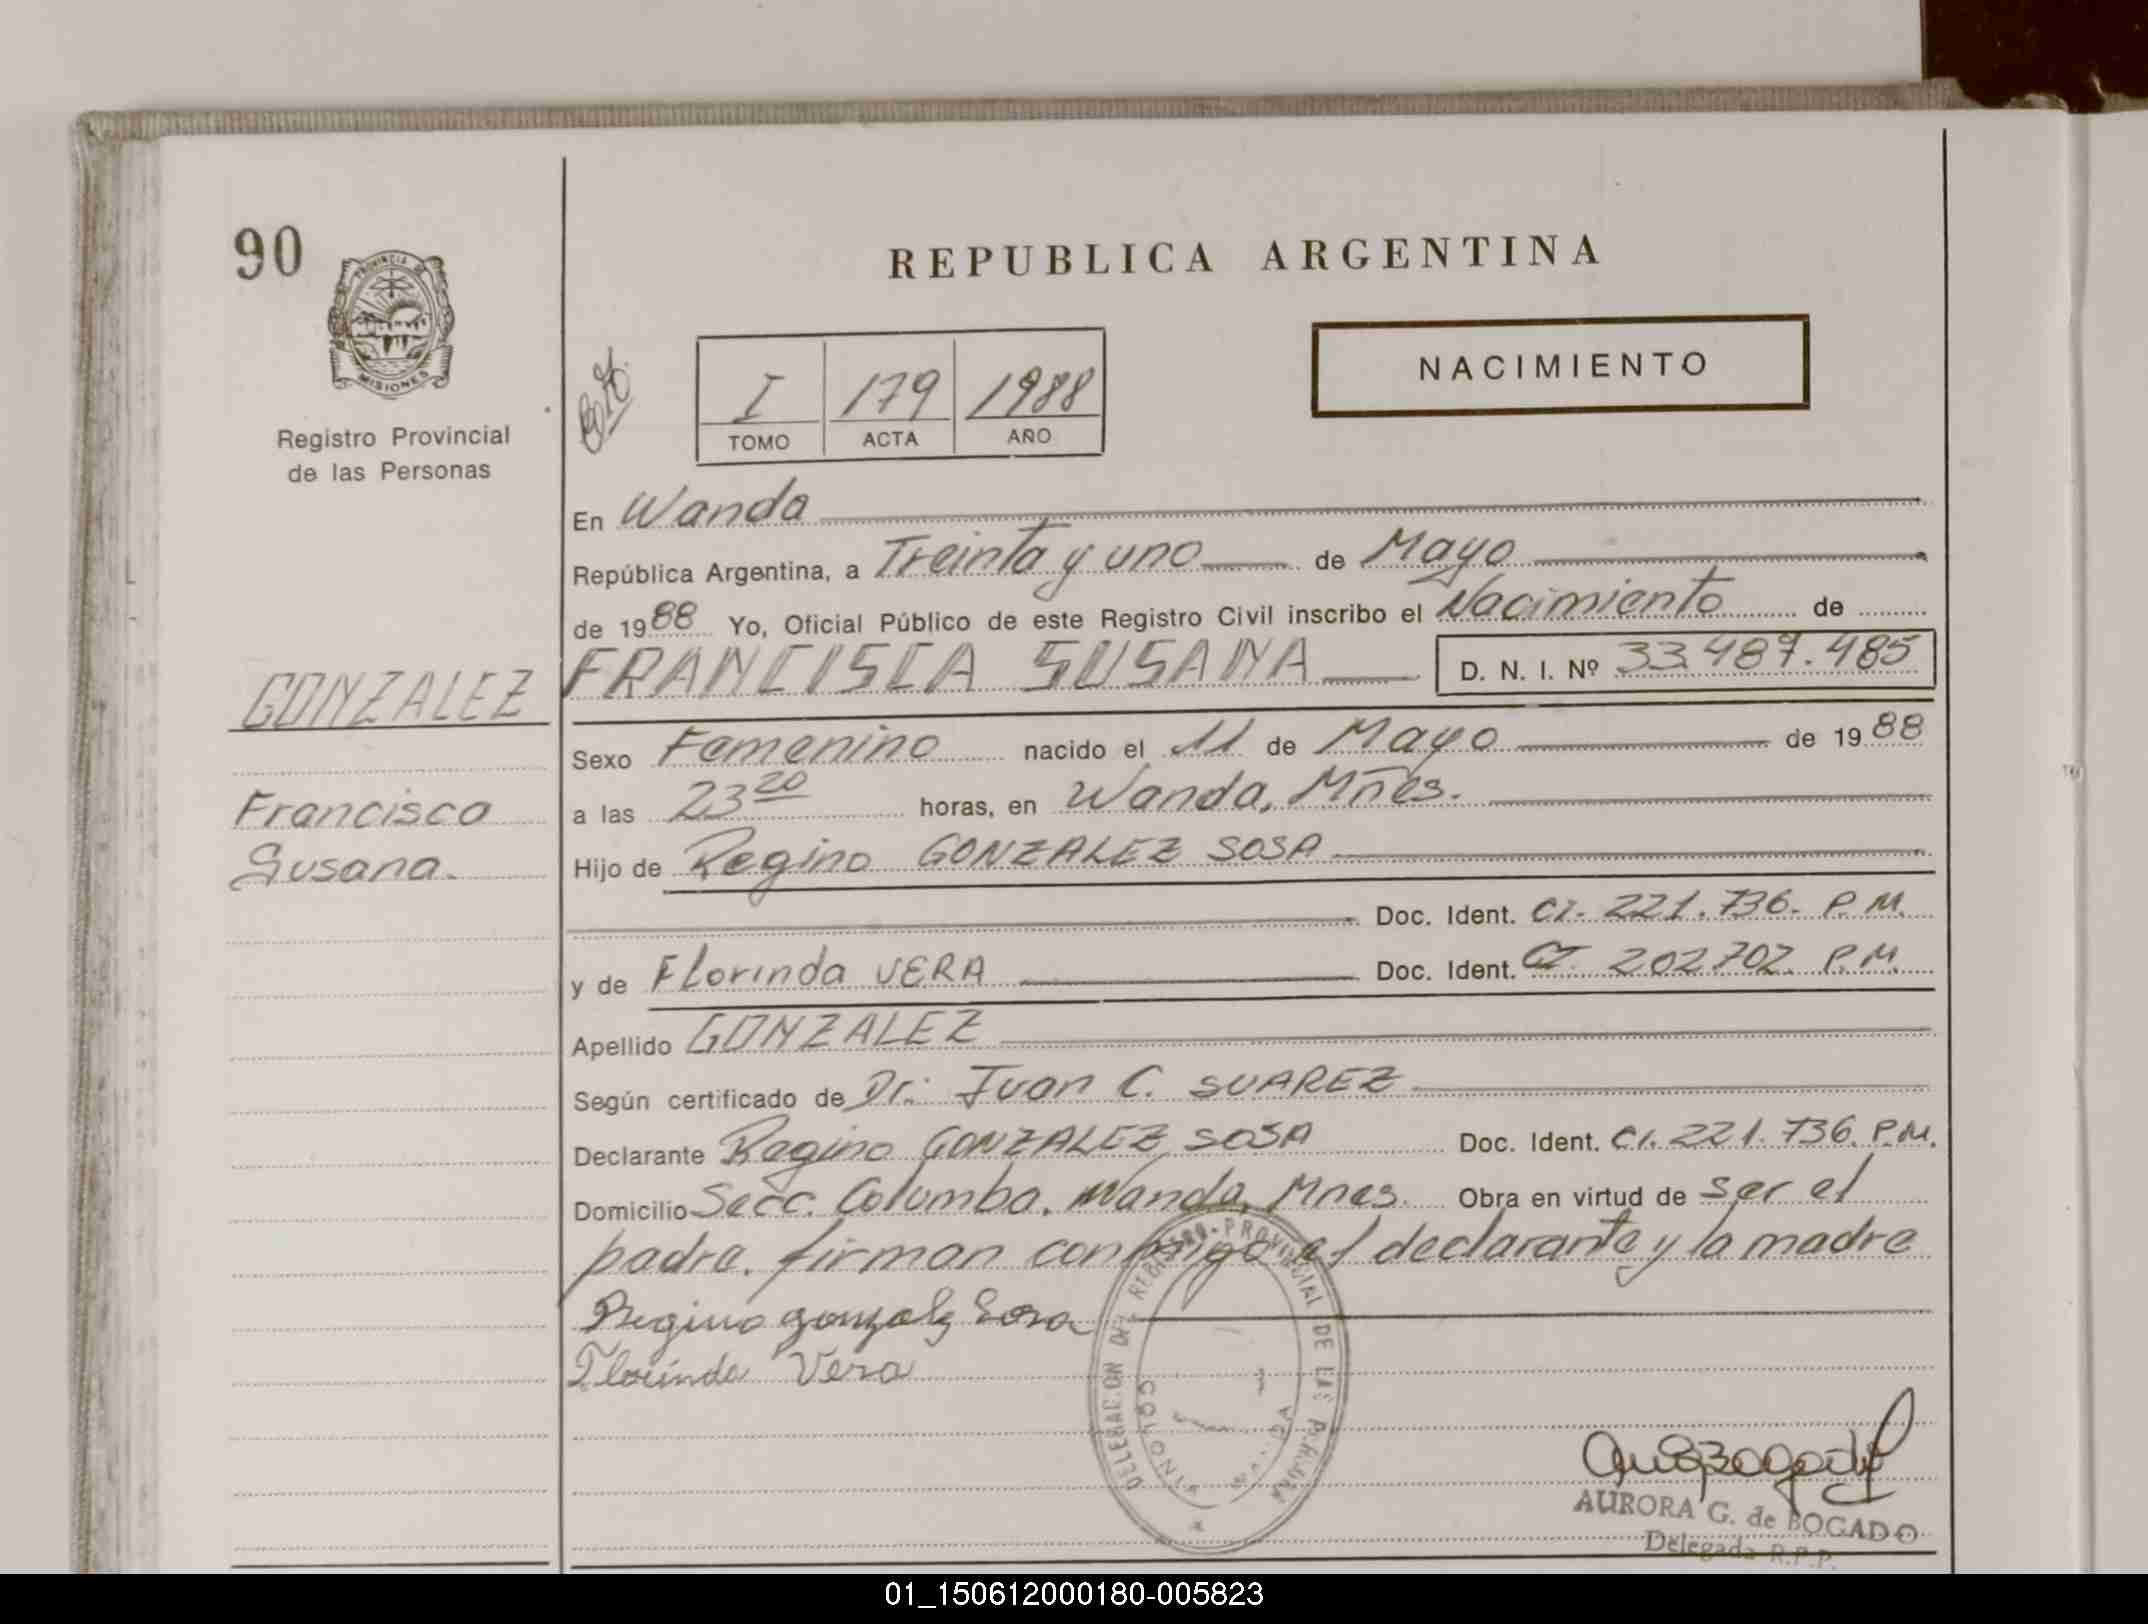 90
PROVINCIA DE
MISIONES
Registro Provincial
de las Personas
REPUBLICA ARGENTINA
NACIMIENTO
I 179 1988
TOMO ACTA AÑO
En Wanda
República Argentina, a Treinta y uno de Mayo
de 1988 Yo, Oficial Público de este Registro Civil inscribo el Nacimiento de
GONZALEZ FRANCISCA SUSANA D. N. I. Nº 33.487.485
Sexo Femenino nacido el 11 de Mayo de 1988
Francisca a las 23 20 horas, en Wanda, Mñes.
Susana. Hijo de Regino GONZALEZ SOSA
Doc. Ident. CI. 221.736. P.M.
y de Florinda VERA Doc. Ident. CI. 202702. P.M.
Apellido GONZALEZ
Según certificado de Dr. Juan C. SUAREZ
Declarante Regino GONZALEZ SOSA Doc. Ident. CI. 221.736. P.M.
Domicilio Secc. Columba. Wanda, Mnes. Obra en virtud de ser el
padre. firman conmigo el declarante y la madre
Regino gonzalz Sosa
Florinda Vera
DELEGACION DEL REGISTRO PROVINCIAL DE LAS PERSONAS
AURORA G. de BOGADO
Delegada R.P.P.
01_150612000180-005823